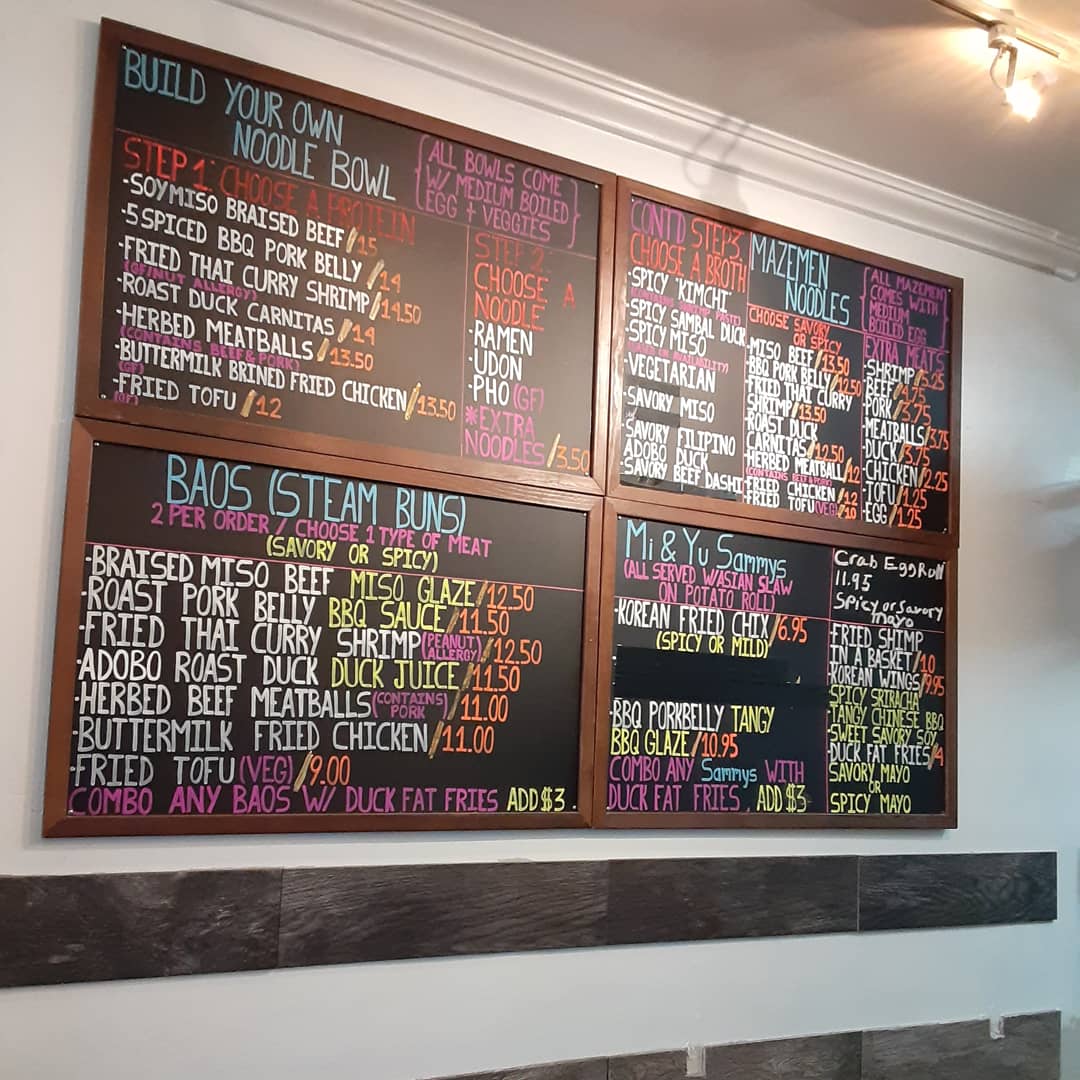 BUILD YOUR OWN
NOODLE BOWL
{ALL BOWLS COME
W/ MEDIUM BOILED
EGG + VEGGIES}
STEP 1: CHOOSE A PROTEIN
-SOYMISO BRAISED BEEF/15
-5 SPICED BBQ PORK BELLY/14
-FRIED THAI CURRY SHRIMP/14.50
(GF/NUT ALLERGY)
-ROAST DUCK CARNITAS/14
-HERBED MEATBALLS/13.50
(CONTAINS BEEF & PORK)
-BUTTERMILK BRINED FRIED CHICKEN/13.50
(GF)
-FRIED TOFU/12
(GF)
STEP 2:
CHOOSE A
NOODLE
-RAMEN
-UDON
-PHO (GF)
*EXTRA
NOODLES/3.50
CONT'D STEP3.
CHOOSE A BROTH
-SPICY 'KIMCHI'
(CONTAINS SHRIMP PASTE)
-SPICY SAMBAL DUCK
-SPICY MISO
(BASED ON AVAILABILITY)
-VEGETARIAN
-SAVORY MISO
-SAVORY FILIPINO
ADOBO DUCK
-SAVORY BEEF DASHI
MAZEMEN
NOODLES
CHOOSE SAVORY
OR SPICY
-MISO BEEF/13.50
-BBQ PORK BELLY/12.50
-FRIED THAI CURRY
SHRIMP/13.50
-ROAST DUCK
CARNITAS/12.50
-HERBED MEATBALL/12
(CONTAINS BEEF&PORK)
-FRIED CHICKEN/12
-FRIED TOFU(VEG)/10
{ALL MAZEMEN
COMES WITH
MEDIUM
BOILED EGG}
EXTRA MEATS
-SHRIMP/5.25
-BEEF/4.75
-PORK/3.75
-MEATBALLS/3.75
-DUCK/3.75
-CHICKEN/2.25
-TOFU/1.25
-EGG/1.25
BAOS (STEAM BUNS)
2 PER ORDER / CHOOSE 1 TYPE OF MEAT
(SAVORY OR SPICY)
-BRAISED MISO BEEF MISO GLAZE/12.50
-ROAST PORK BELLY BBQ SAUCE/11.50
-FRIED THAI CURRY SHRIMP(PEANUT ALLERGY)/12.50
-ADOBO ROAST DUCK DUCK JUICE/11.50
-HERBED BEEF MEATBALLS(CONTAINS PORK)/11.00
-BUTTERMILK FRIED CHICKEN/11.00
-FRIED TOFU(VEG)/9.00
COMBO ANY BAOS W/ DUCK FAT FRIES ADD $3.
Mi & Yu Sammys
(ALL SERVED W/ASIAN SLAW
ON POTATO ROLL)
-KOREAN FRIED CHIX/6.95
(SPICY OR MILD)
-BBQ PORKBELLY TANGY
BBQ GLAZE/10.95
COMBO ANY Sammys WITH
DUCK FAT FRIES, ADD $3
Crab Egg Roll
11.95
Spicy or savory
mayo
-FRIED SHIMP
IN A BASKET/10
-KOREAN WINGS/9.95
SPICY SRIRACHA
TANGY CHINESE BBQ
SWEET SAVORY SOY
-DUCK FAT FRIES/4
SAVORY MAYO
OR
SPICY MAYO